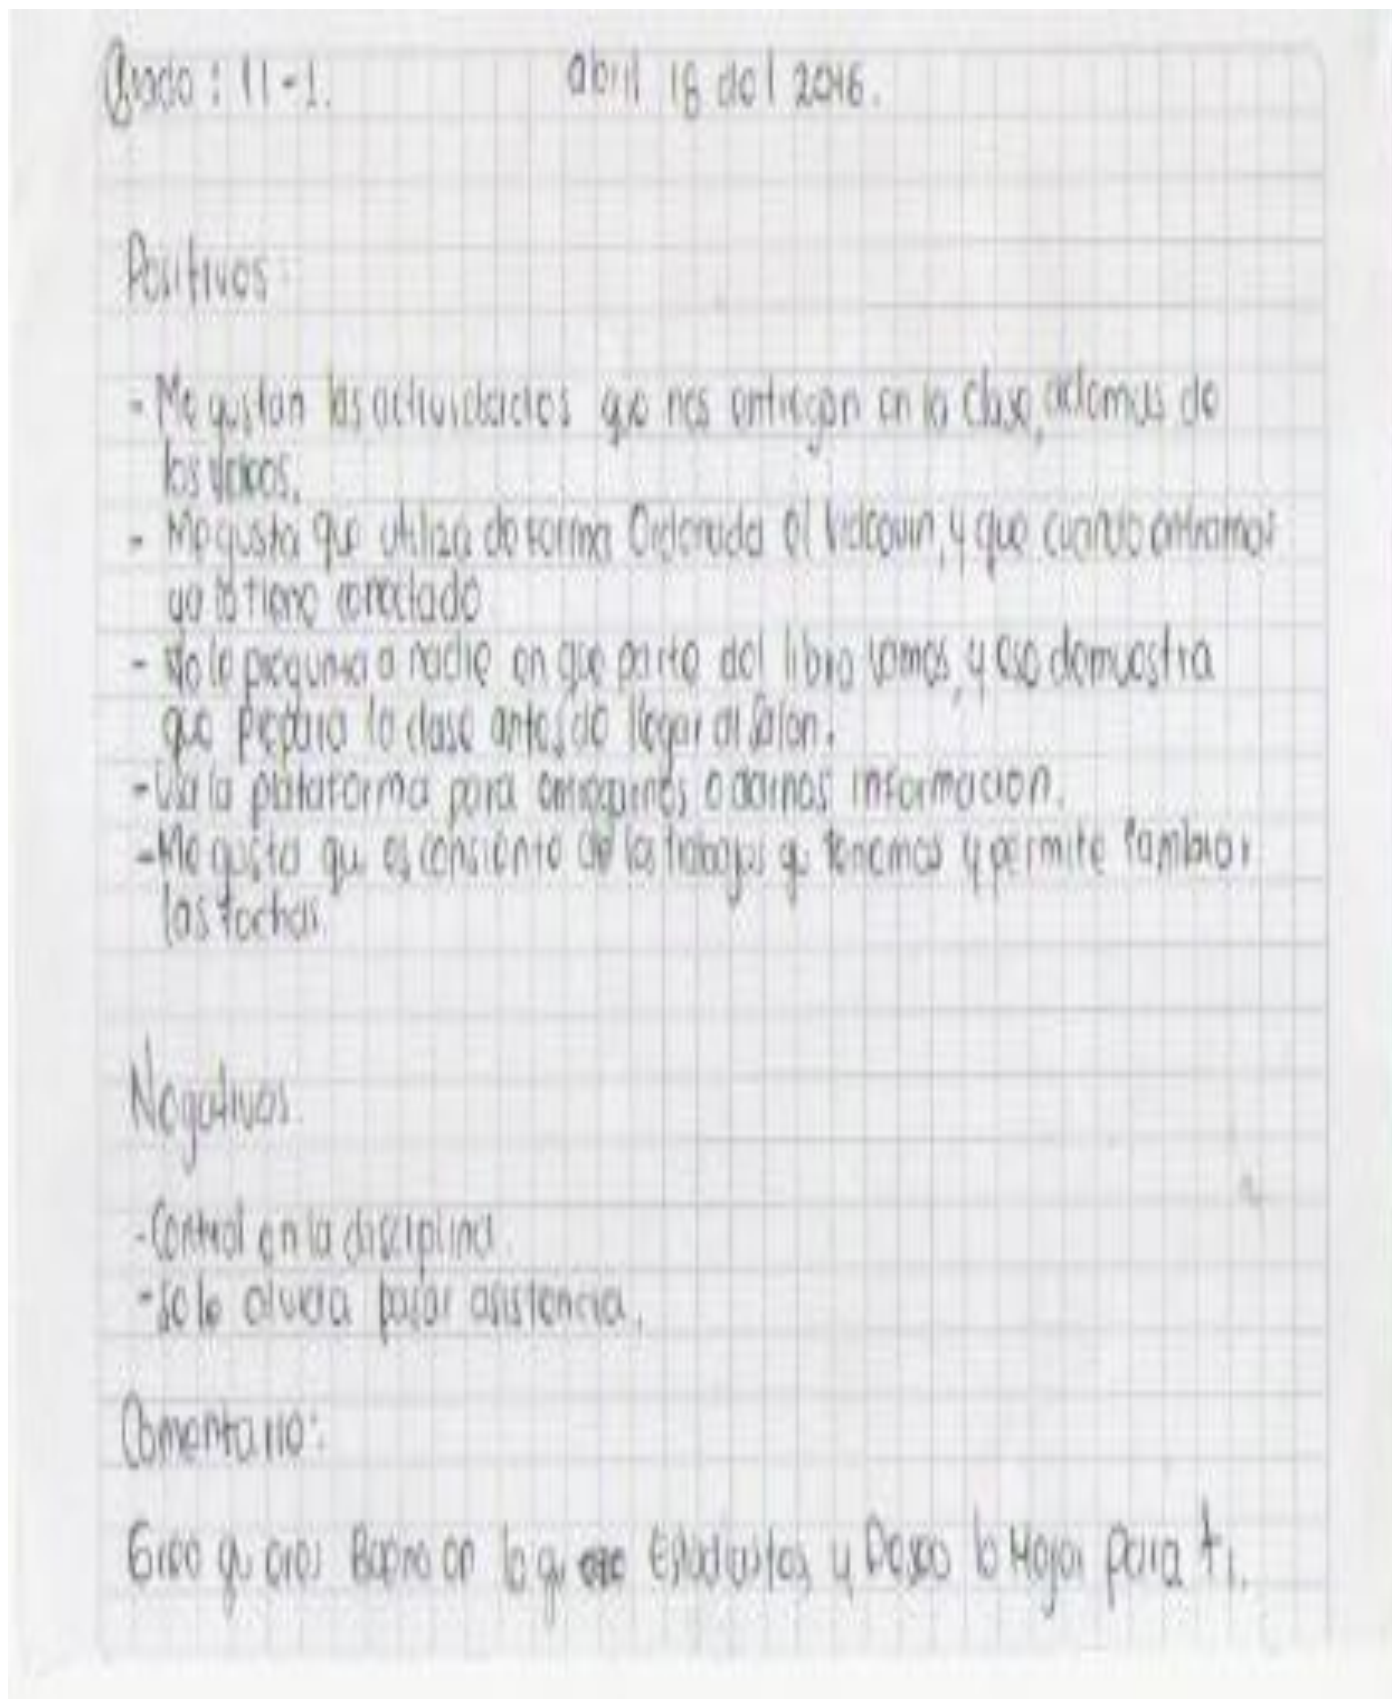 Grado: 11-1. abril 18 del 2016.
Positivos:
- Me gustan las actividades que nos entregan en la clase, ademas de
los videos.
- Me gusta que utiliza de forma Ordenada el Videovin, y que cuando entramos
ya lo tiene conectado
- No le pregunta a nadie en que parte del libro vamos, y eso demuestra
que prepara la clase antes de llegar al Salon.
- Usa la plataforma para entregarnos o darnos información.
- Me gusta qu es consiente de los trabajos q tenemos y permite cambiar
las fechas.
Negativos
- Control en la disciplina.
- Se le olvida pasar asistencia.
Comentario:
Creo qu eres Buena en lo qu Estudiastes, y Deseo lo Mejor para ti.